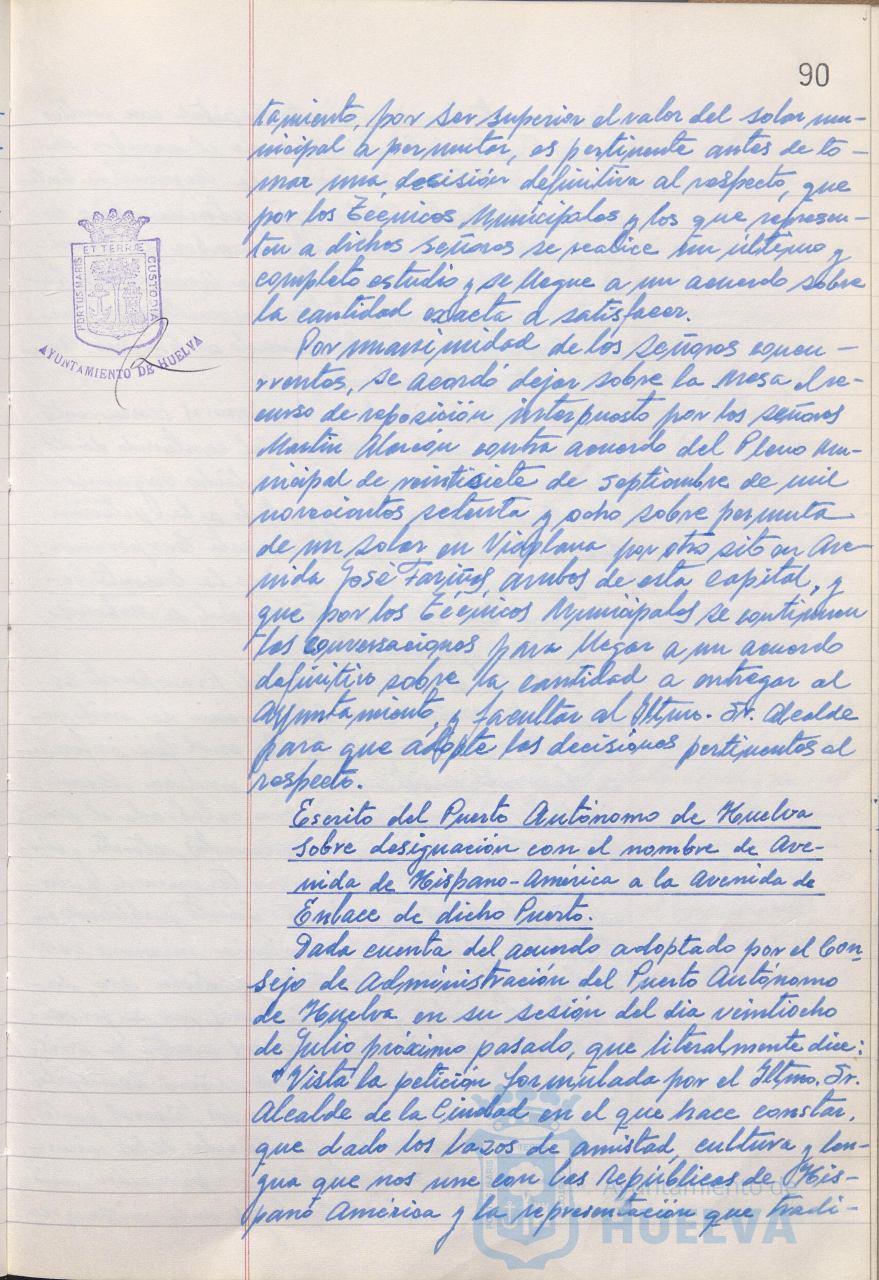 90
tamiento, por ser superior el valor del solar mu-
nicipal a permutar, es pertinente antes de to-
mar una decisión definitiva al respecto, que
por los Técnicos Municipales y los que represen-
tan a dichos señores se realice un último y
completo estudio y se llegue a un acuerdo sobre
la cantidad exacta a satisfacer.
Por unanimidad de los señores concu-
rrentes, se acordó dejar sobre la mesa el re-
curso de reposición interpuesto por los señores
Martin Alarcón contra acuerdo del Pleno mu-
nicipal de veintisiete de septiembre de mil
novecientos setenta y ocho sobre permuta
de un solar en Viaplana por otro sito en Ave-
nida José Fariñas, ambos de esta capital, y
que por los Técnicos Municipales se continuen
las conversaciones para llegar a un acuerdo
definitivo sobre la cantidad a entregar al
Ayuntamiento, y facultar al Iltmo. Sr. Alcalde
para que adopte las decisiones pertinentes al
respecto.
Escrito del Puerto Autónomo de Huelva
sobre designación con el nombre de Ave-
nida de Hispano-América a la Avenida de
Enlace de dicho Puerto.
Dada cuenta del acuerdo adoptado por el Con-
sejo de Administración del Puerto Autónomo
de Huelva en su sesión del dia veintiocho
de Julio próximo pasado, que literalmente dice:
"Vista la petición formulada por el Iltmo. Sr.
Alcalde de la Ciudad en el que hace constar,
que dado los lazos de amistad, cultura y len-
gua que nos une con las Repúblicas de His-
pano América y la representación que tradi-
PORTUS MARIS ET TERRÆ CUSTODIA
AYUNTAMIENTO DE HUELVA
Ayuntamiento de
HUELVA